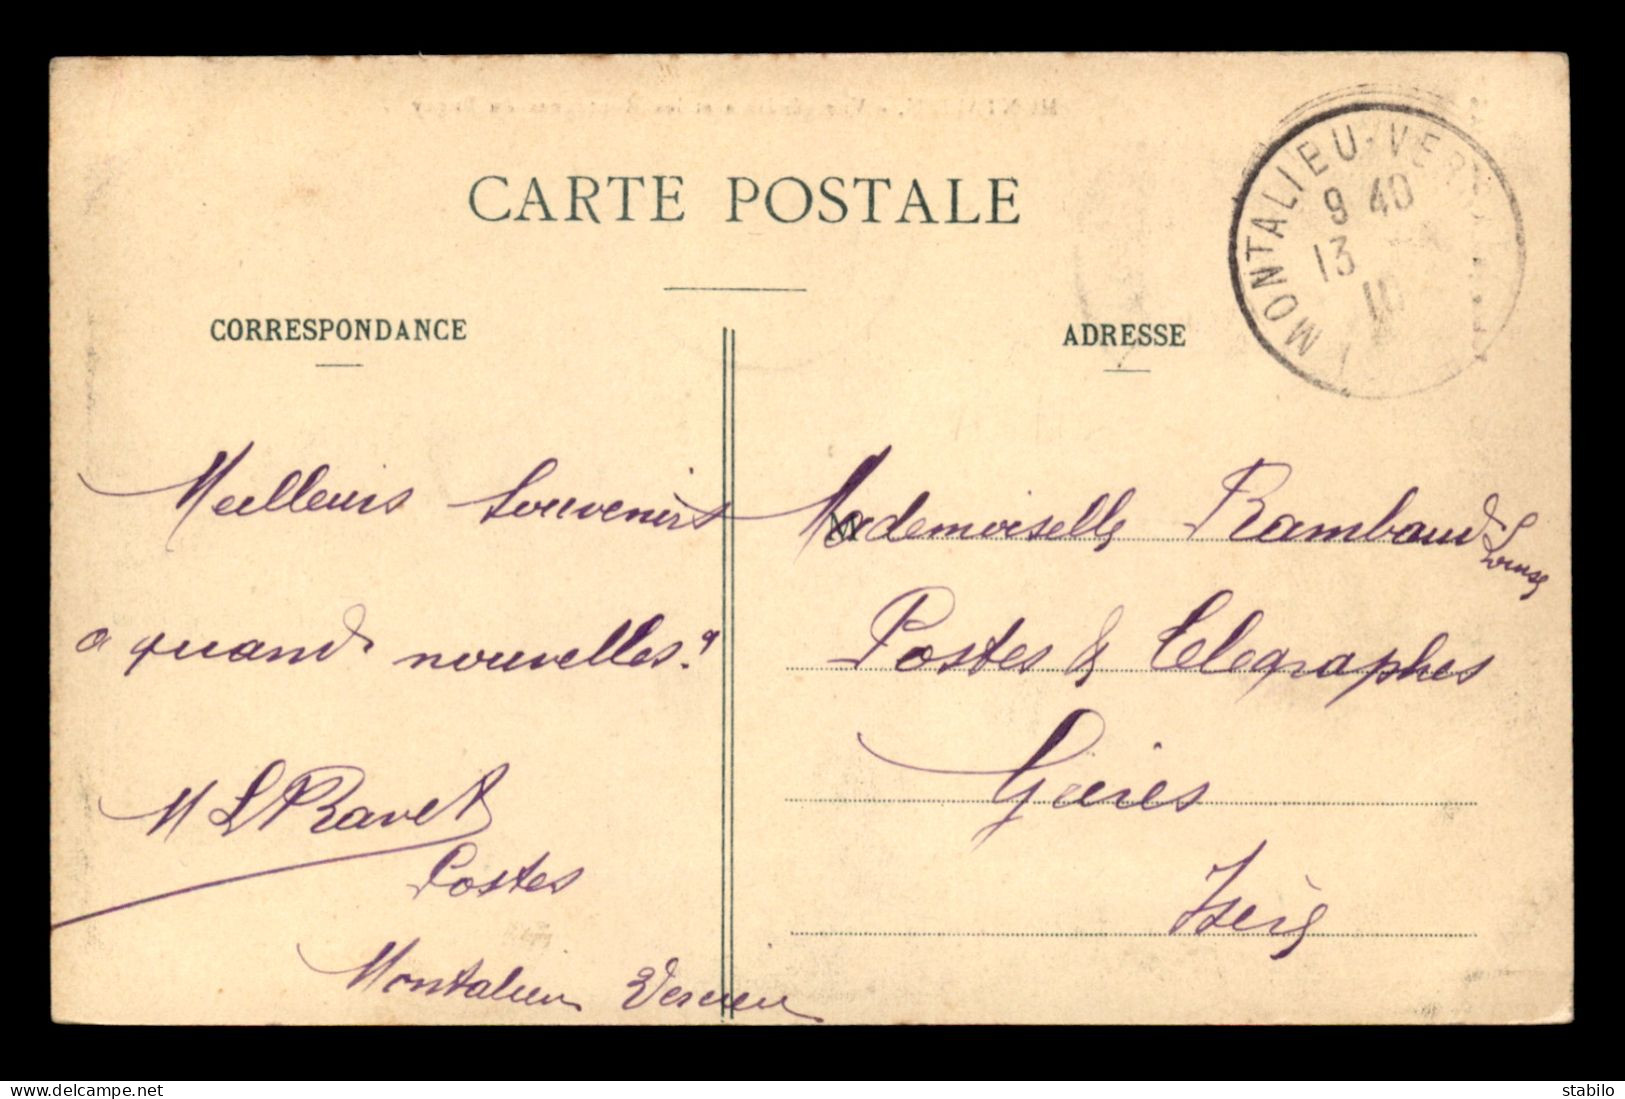 CARTE POSTALE
CORRESPONDANCE
ADRESSE
MONTALIEU-VER
9 40
13
10
Meilleurs Souvenirs
a quand nouvelles?
M L Ravet
Postes
Montalieu Vercieu
Mademoiselle Rambaud
Louise
Postes & Telegraphes
Isère
www.delcampe.net
stabilo